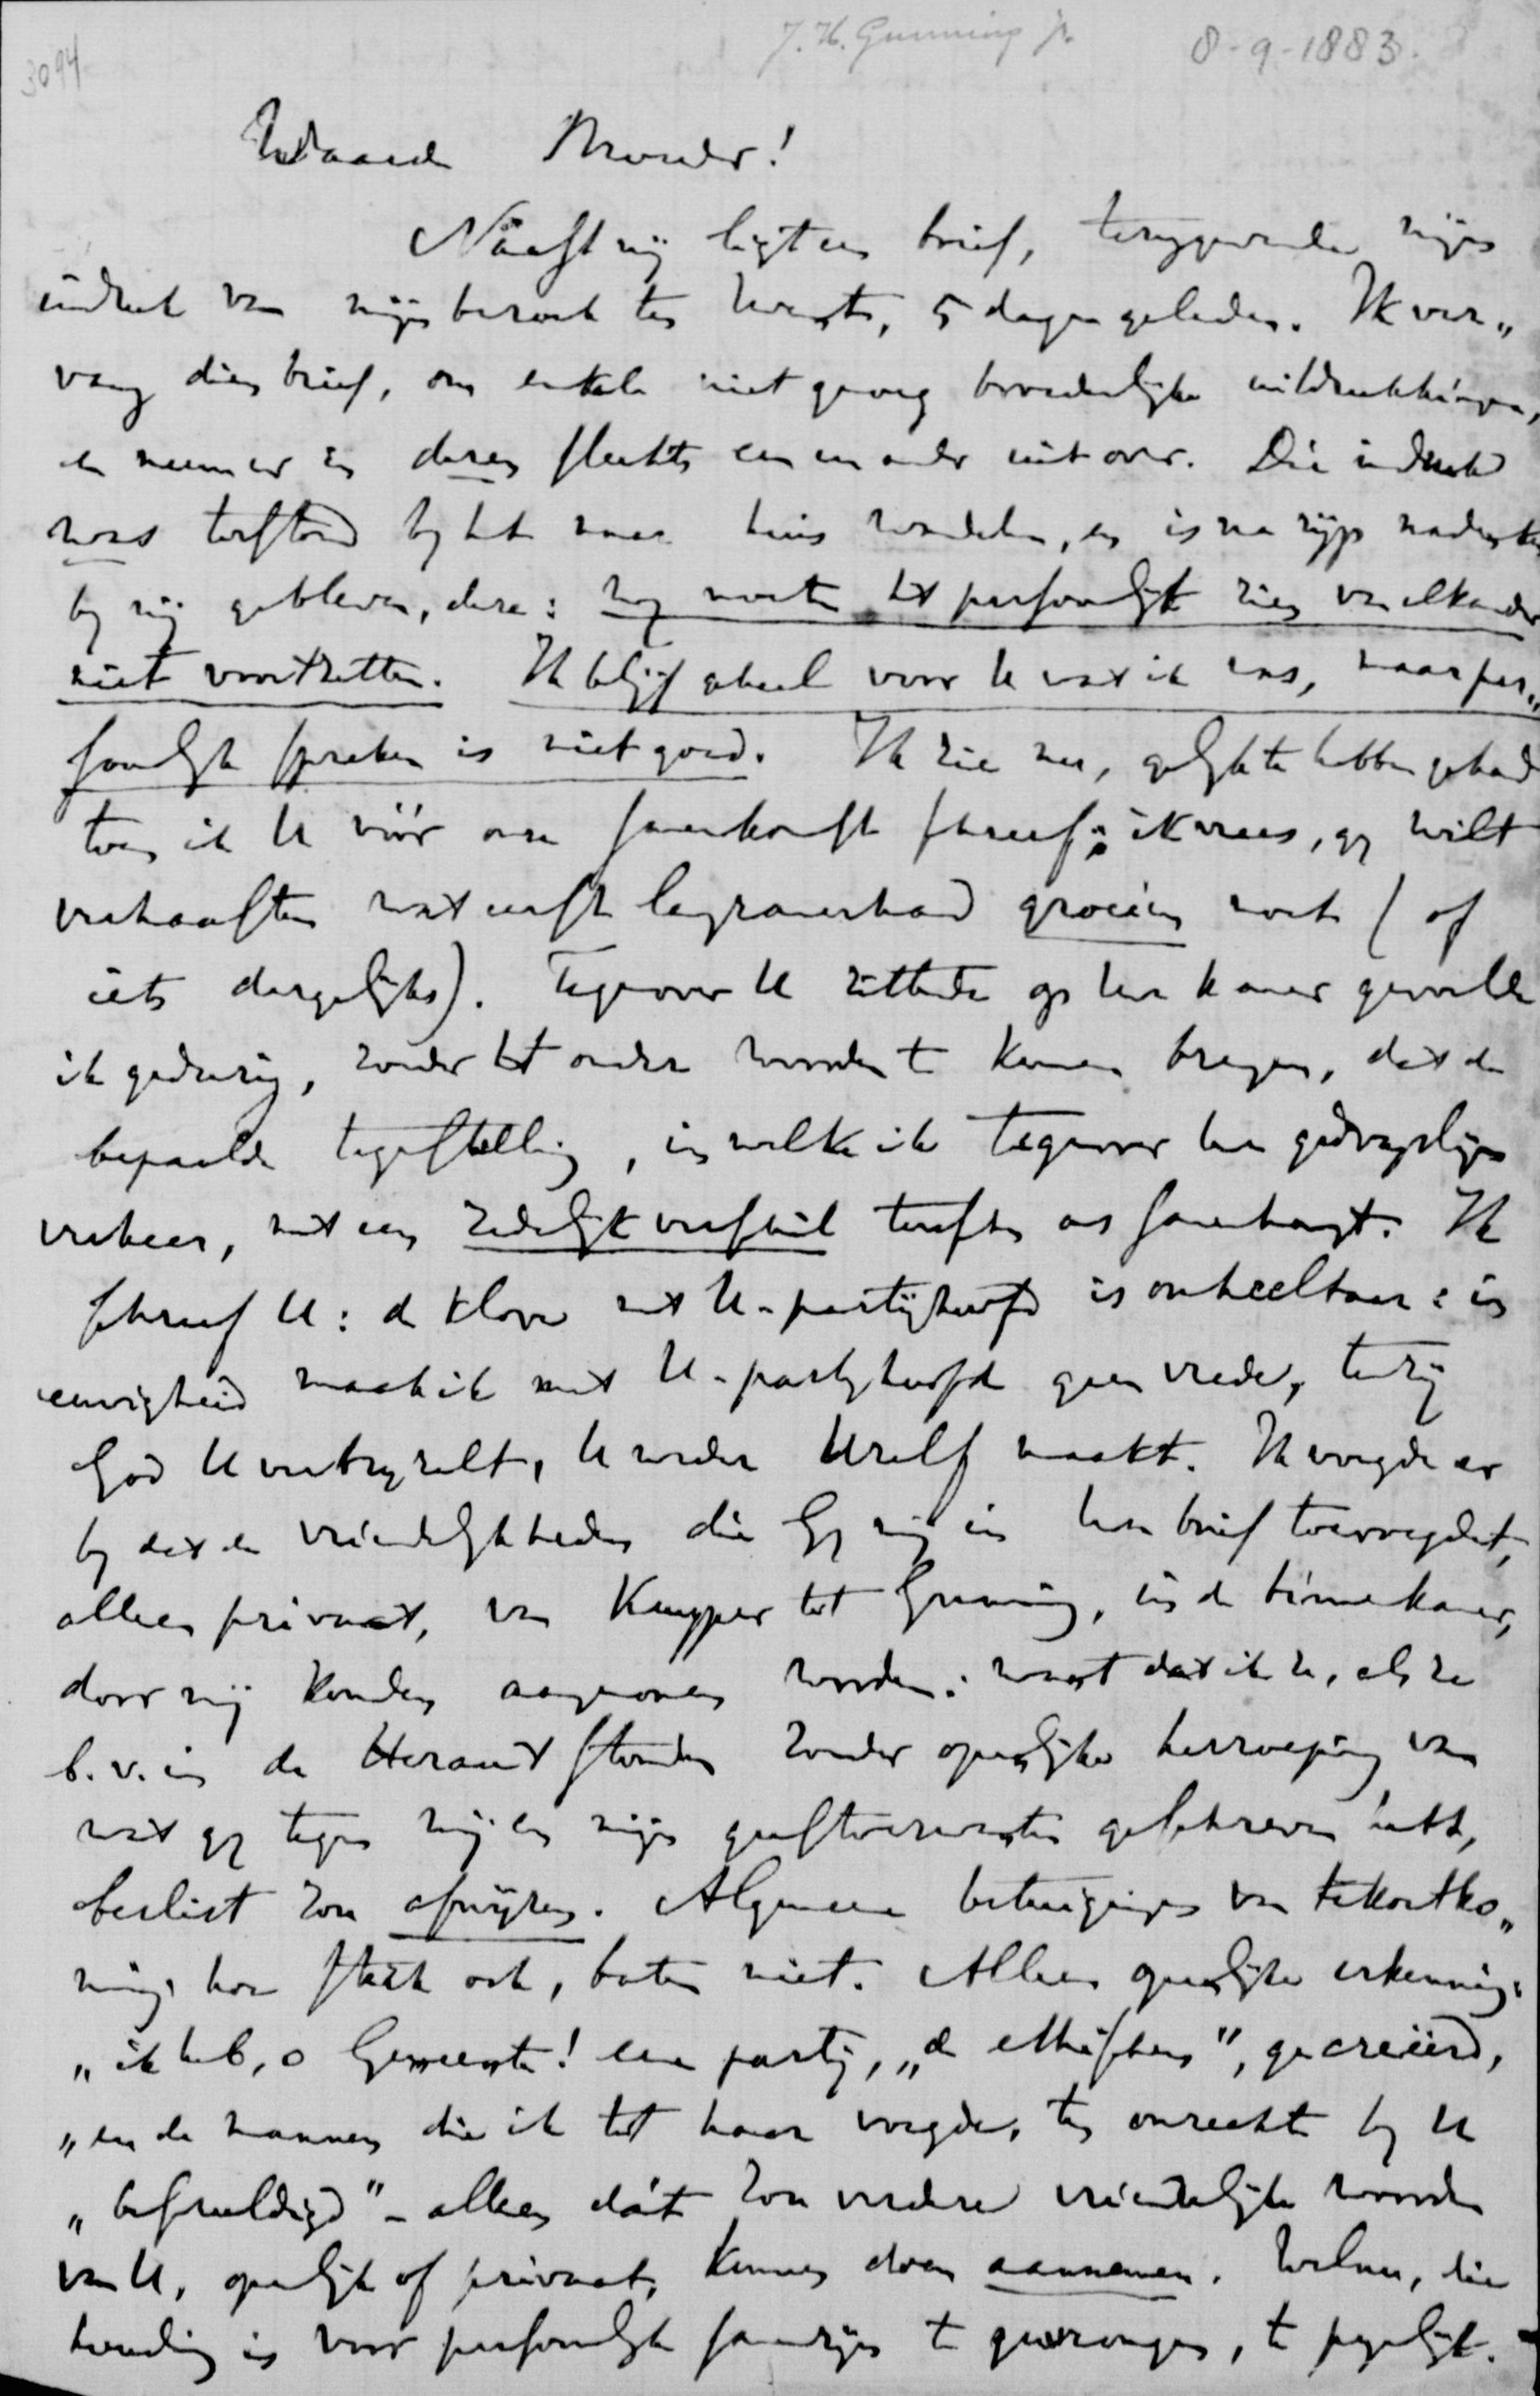 J. H. Gunning Jr.
8-9-1883.
3094
Waarde Broeder!
Naast mij ligt een brief, teruggevende mijn
indruk van mijn bezoek ten Uwent, 5 dagen geleden. Ik ver„
vang dien brief, om enkele niet genoeg broederlijke uitdrukkingen,
en neem er in dezen slechts een en ander uit over. Die indruk
was terstond bij het naar huis wandelen, en is na rijp nadenken
bij mij gebleven, deze: wij moeten het persoonlijk zien van elkander
niet voortzetten. Ik blijf geheel voor U wat ik was, maar per„
soonlijk spreken is niet goed. Ik zie nu, gelijk te hebben gehad
toen ik U vóór onze samenkomst schreef: ik vrees, gij wilt
verhaasten wat eerst langzamerhand groeien moet (of
iets dergelijks). Tegenover U zittende op Uwe kamer gevoelde
ik gedurig, zonder het onder woorden te kunnen brengen, dat de
bepaalde tegenstelling, in welke ik tegenover Uwe gedragslijn
verkeer, met een zedelijk verschil tusschen ons samenhangt. Ik
schreef U: de klove met U-partijhoofd is onheelbaar: in
eeuwigheid maak ik met U-partijhoofd geen vrede, tenzij
God U verbrijzelt, U weder Uzelf maakt. Ik voegde er
bij dat de vriendelijkheden die Gij mij in Uwe brief toevoegdet,
alleen privaat, van Kuyper tot Gunning, in de binnenkamer,
door mij konden aangenomen worden: want dat ik ze, als ze
b.v. in de Heraut stonden zonder openlijke herroeping van
wat gij tegen mij en mijn geestverwanten geschreven hebt,
beslist zou afwijzen. Algemeene betuigingen van tekortko„
ming, hoe sterk ook, baten niet. Alleen openlijke erkenning:
„ik heb, o Gemeente! eene partij, „de ethischen", gecreëerd,
„en de mannen die ik tot haar voegde, ten onrechte bij U
„beschuldigd" – alleen dát zou verdere vriendelijke woorden
van U, openlijk of privaat, kunnen doen aannemen. Welnu, die
houding is voor persoonlijk samenzijn te gewrongen, te pijnlijk.